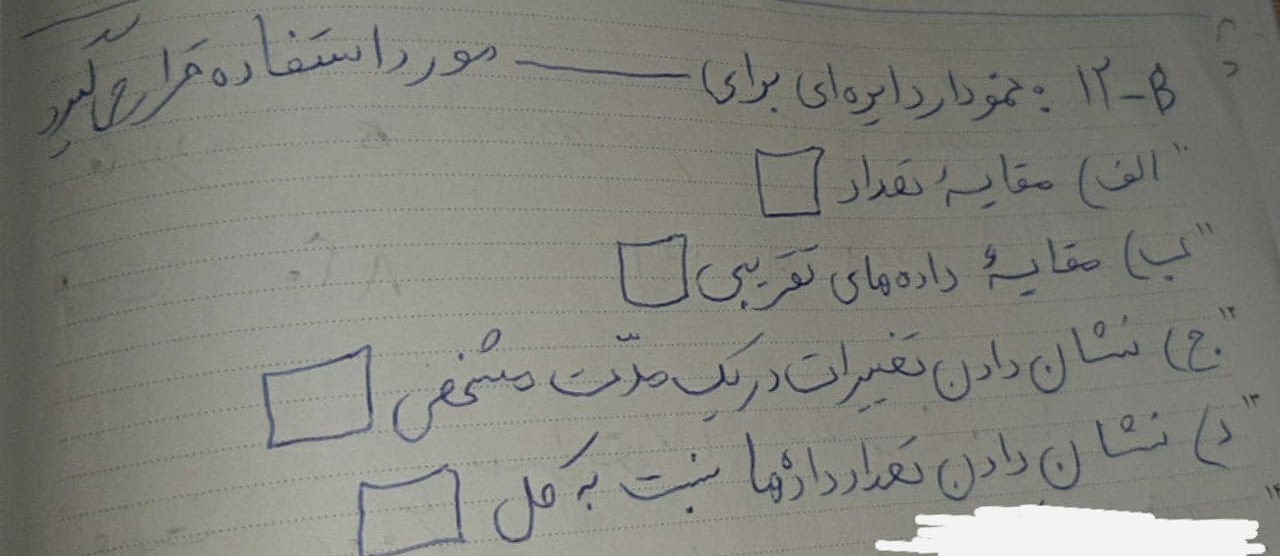 ۱۲-B : نمودار دایره‌ای برای ــــــــ مورد استفاده قرار می‌گیرد
الف) مقایسهٔ تعداد
ب) مقایسهٔ داده‌های تقریبی
ج) نشان دادن تغییرات در یک مدّت مشخص
د) نشان دادن تعداد داده‌ها نسبت به کل